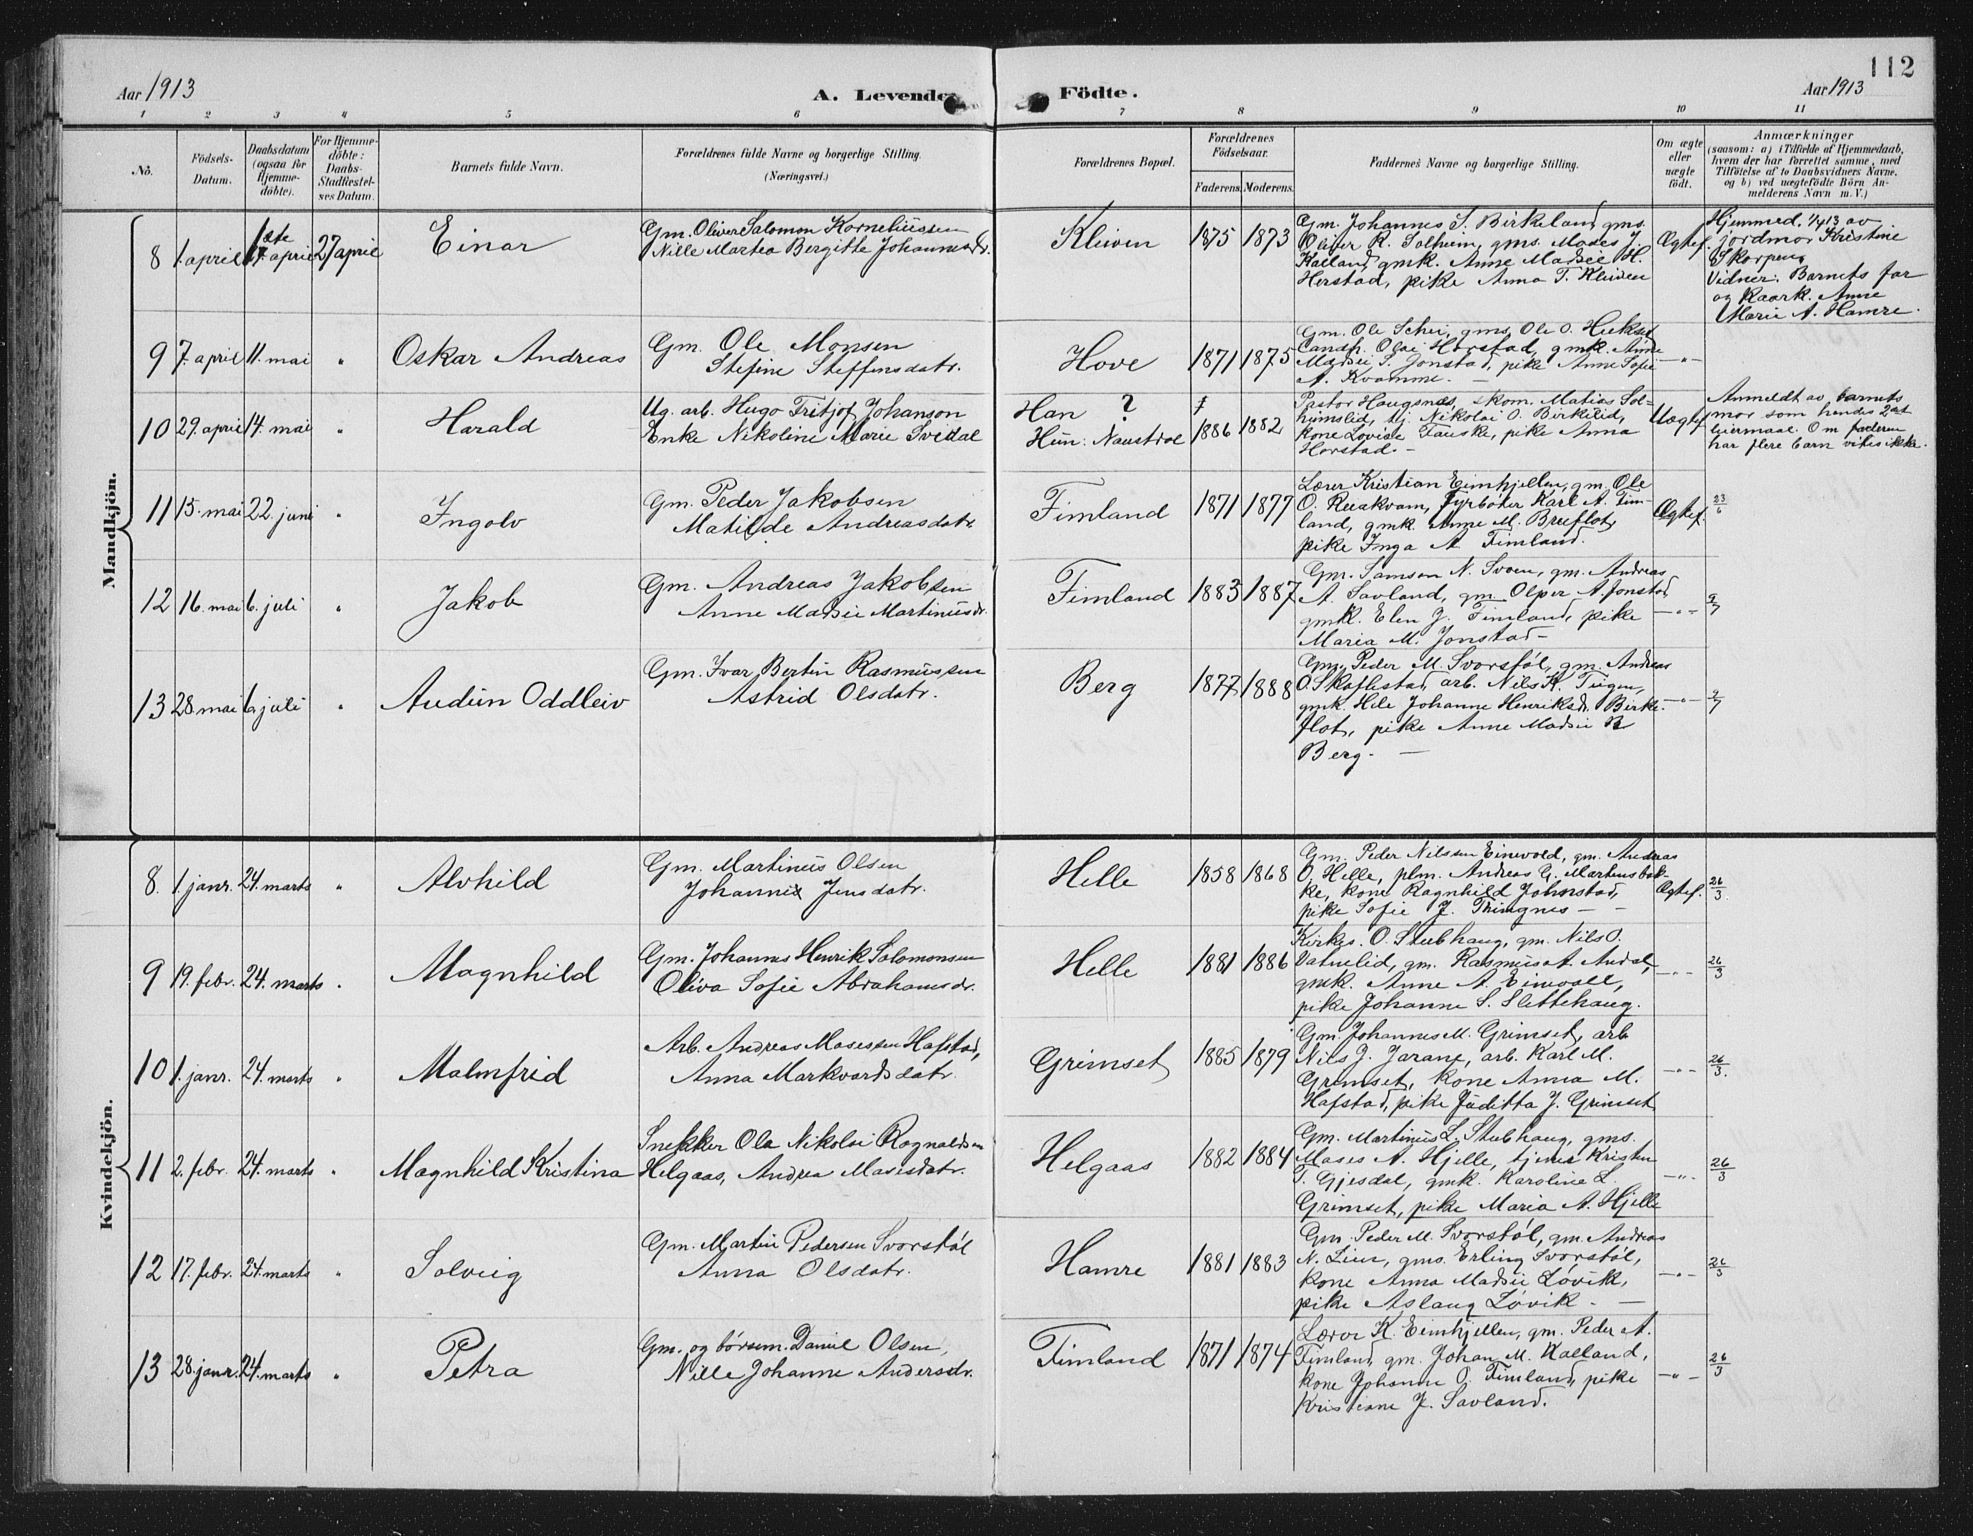 112
Aar 1913
A. Levende Födte.
Aar 1913
1 2 3 4 5 6 7 8 9 10 11
No.
Födsels-Datum.
Daabsdatum (ogsaa for Hjemme-döbte).
For Hjemme-döbte: Daabs-Stadfæstel-ses Datum.
Barnets fulde Navn.
Forældrenes fulde Navne og borgerlige Stilling.
(Næringsvei.)
Forældrenes Bopæl.
Forældrenes Födselsaar.
Faderens. Moderens.
Faddernes Navne og borgerlige Stilling.
Om ægte eller uægte födt.
Anmærkninger
(saasom: a) i Tilfælde af Hjemmedaab,
hvem der har forrettet samme, med
Tilföielse af to Daabsvidners Navne.
og b) ved uægtefödte Börn An-
melderens Navn m. V.)
Mandkjön.
8 1. april 1ste 17. april 27 april Einar
Gm. Oliver Salomon Korneliussen
Nille Martea Bergitte Johannesdr.
Kleiven 1875 1873
Gm. Johannes S. Birkeland, gms.
Oliver K. Solheim, gms. Moses J.
Kalland, gmk. Anne Madsie H.
Herstad, pike Anna T. Kleiven
Ægtef.
Hjemmed. 1/4 13 av
jordmor Kristine
Skorpen
Vidner: Barnets far
og kaark. Anne
Marie A. Hamre.
9 7. april 11. mai " Oskar Andreas
Gm. Ole Monsen
Stefine Steffensdatr.
Hove 1871 1875
Gm. Ole Schei, gms. Ole O.
Olai Horstad, gmk. Anne
Madsie S. Jonstad, pike Anne Sofie
A. Kvamme. —
—"—
10 29. april 14. mai " Harald
Ug. arb. Hugo Fritjof Johanson
Enke Nikoline Marie Svidal
Han ?
Hun: Naustdal
? 1886 1882
Pastor Haugsnæs, skom. Matias Sol-
heimslid, tj. Nikolai O. Birkelid,
kone Lovise Fauske, pike Anna
Horstad. —
Uægtef.
Anmeldt av barnets
mor som hendes 2det
leiermaal. Om faderen
har flere barn vites ikke.
11 15. mai 22. juni " Ingolv
Gm. Peder Jakobsen
Matilde Andreasdatr.
Fimland 1871 1877
Lærer Kristian Eimhjellen, gm. Ole
O. Reiakvam, Fyrbøter Karl A. Fim-
land, gmk. Anne M. Breflot,
pike Inga A. Fimland.
Ægtef. 23/6
12 16. mai 6. juli " Jakob
Gm. Andreas Jakobsen
Anne Madsie Martinusdr.
Fimland 1883 1887
Gm. Samson N. Svoen, gm. Andreas
A. Savland, gm. Olper A. Jonstad
gmk. Elen J. Fimland, pike
Maria M. Jonstad —
—"— 9/7
13 28. mai 6. juli " Audun Oddleiv
Gm. Ivar Bertin Rasmussen
Astrid Olsdatr.
Berg 1877 1888
Gm. Peder M. Svorstøl, gm. Andreas
O. Skaflestad, arb. Nils K.
gmk. Hele Johanne Henriksdr. Birke-
flot, pike Anne Madsie R
Berg. —
—"— 9/7
Kvindekjön.
8. 1. janr. 24. marts " Alvhild
Gm. Martinus Olsen
Johanne Jensdatr.
Helle 1858 1868
Gm. Peder Nilssen Einevold, gm. Andreas
O. Helle, plm. Andreas G. Martinsbak-
ke, kone Ragnhild Johnstad,
pike Sofie J. Thingnes —
Ægtef. 26/3
9 19. febr. 24. marts " Magnhild
Gm. Johannes Henrik Salomonsen
Oliva Sofie Abrahamsdr.
Helle 1881 1886
Kirkes. O. Stubhaug, gm. Nils O.
Vatnelid, gm. Rasmus A. Andal,
gmk. Anne A. Einvoll,
pike Johanne S. Slettehaug.
—"— 26/3
10 1. janr. 24. marts " Malmfrid
Arb. Andreas Mosessen Hafstad,
Anna Markvardsdatr.
Grimset 1885 1879
Gm. Johannes M. Grimset, arb.
Nils J. , arb. Karl M.
Grimset, kone Anna M.
Hafstad, pike Juditta J. Grimset
—"— 26/3.
11 2. febr. 24. marts " Magnhild Kristina
Snekker Ole Nikolai Ragnaldsen
Helgaas, Andrea Mosesdatr.
Helgaas 1882 1884
Gm. Martinus L. Stubhaug, gms.
Moses A. Hjelle, tjener Kristen
T. Gjesdal, gmk. Karoline L.
Grimset, pike Maria A. Hjelle
—"— 26/3
12 17. febr. 24. marts " Solveig
Gm. Martin Pedersen Svorstøl
Anna Olsdatr.
Hamre 1881 1883
Gm. Peder M. Svorstøl, gm. Andreas
N. Lien, gms. Erling Svorstøl,
kone Anna Madsie Løvik,
pike Aslaug Løvik. —
—"— 26/3
13 28. janr. 24. marts " Petra
Gm. og børsem. Daniel Olsen,
Nille Johanne Andersdr.
Fimland 1871 1874
Lærer K. Eimhjellen, gm. Peder A.
Fimland, gm. Johan M. Kalland,
kone Johanne O. Fimland, pike
Kristiane J. Savland.
—"— 26/3